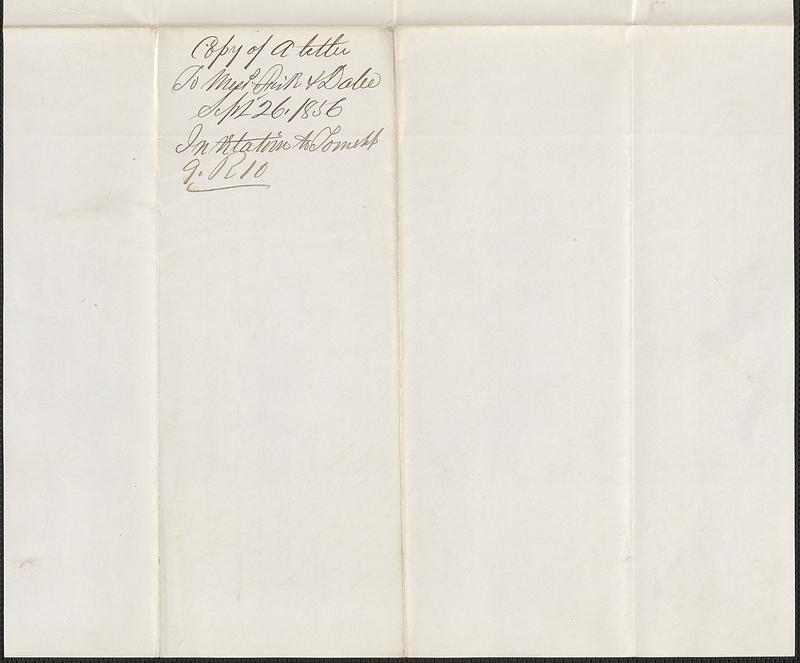 Copy of A letter
To Messrs & Dale
Sept 26. 1856
In Relation to Township
9. R 10